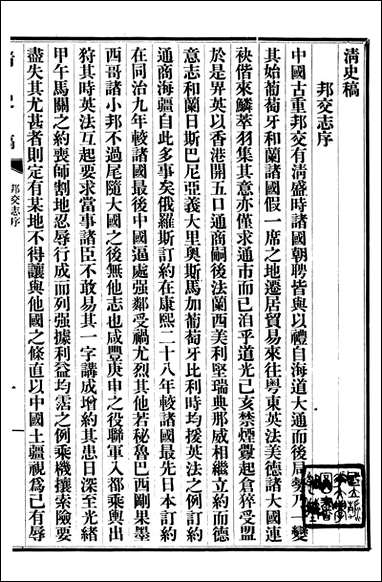 清史稿
邦交志序
中國古重邦交有清盛時諸國朝聘皆與以禮自海道大通而後局勢乃一變
其始葡萄牙和蘭諸國假一席之地遷居貿易來往粤東英法美德諸大國連
袂偕來鱗萃羽集其意亦僅求通市而已洎乎道光己亥禁煙釁起倉猝受盟
於是畀英以香港開五口通商嗣後法蘭西美利堅瑞典那威相繼立約而德
意志和蘭日斯巴尼亞義大里奥斯馬加葡萄牙比利時均援英法之例訂約
通商海疆自此多事矣俄羅斯訂約在康熙二十八年較諸國最先日本訂約
在同治九年較諸國最後中國逼處強鄰受禍尤烈其他若秘魯巴西剛果墨
西哥諸小邦不過尾隨大國之後無他志也咸豐庚申之役聯軍入都乘輿出
狩其時英法互起要求當事諸臣不敢易其一字講成增約其患日深至光緒
甲午馬關之約喪師割地忍辱行成而列強據利益均霑之例乘機攘索險要
盡失其尤甚者則定有某地不得讓與他國之條直以中國土疆視為己有辱
清史稿
邦交志序